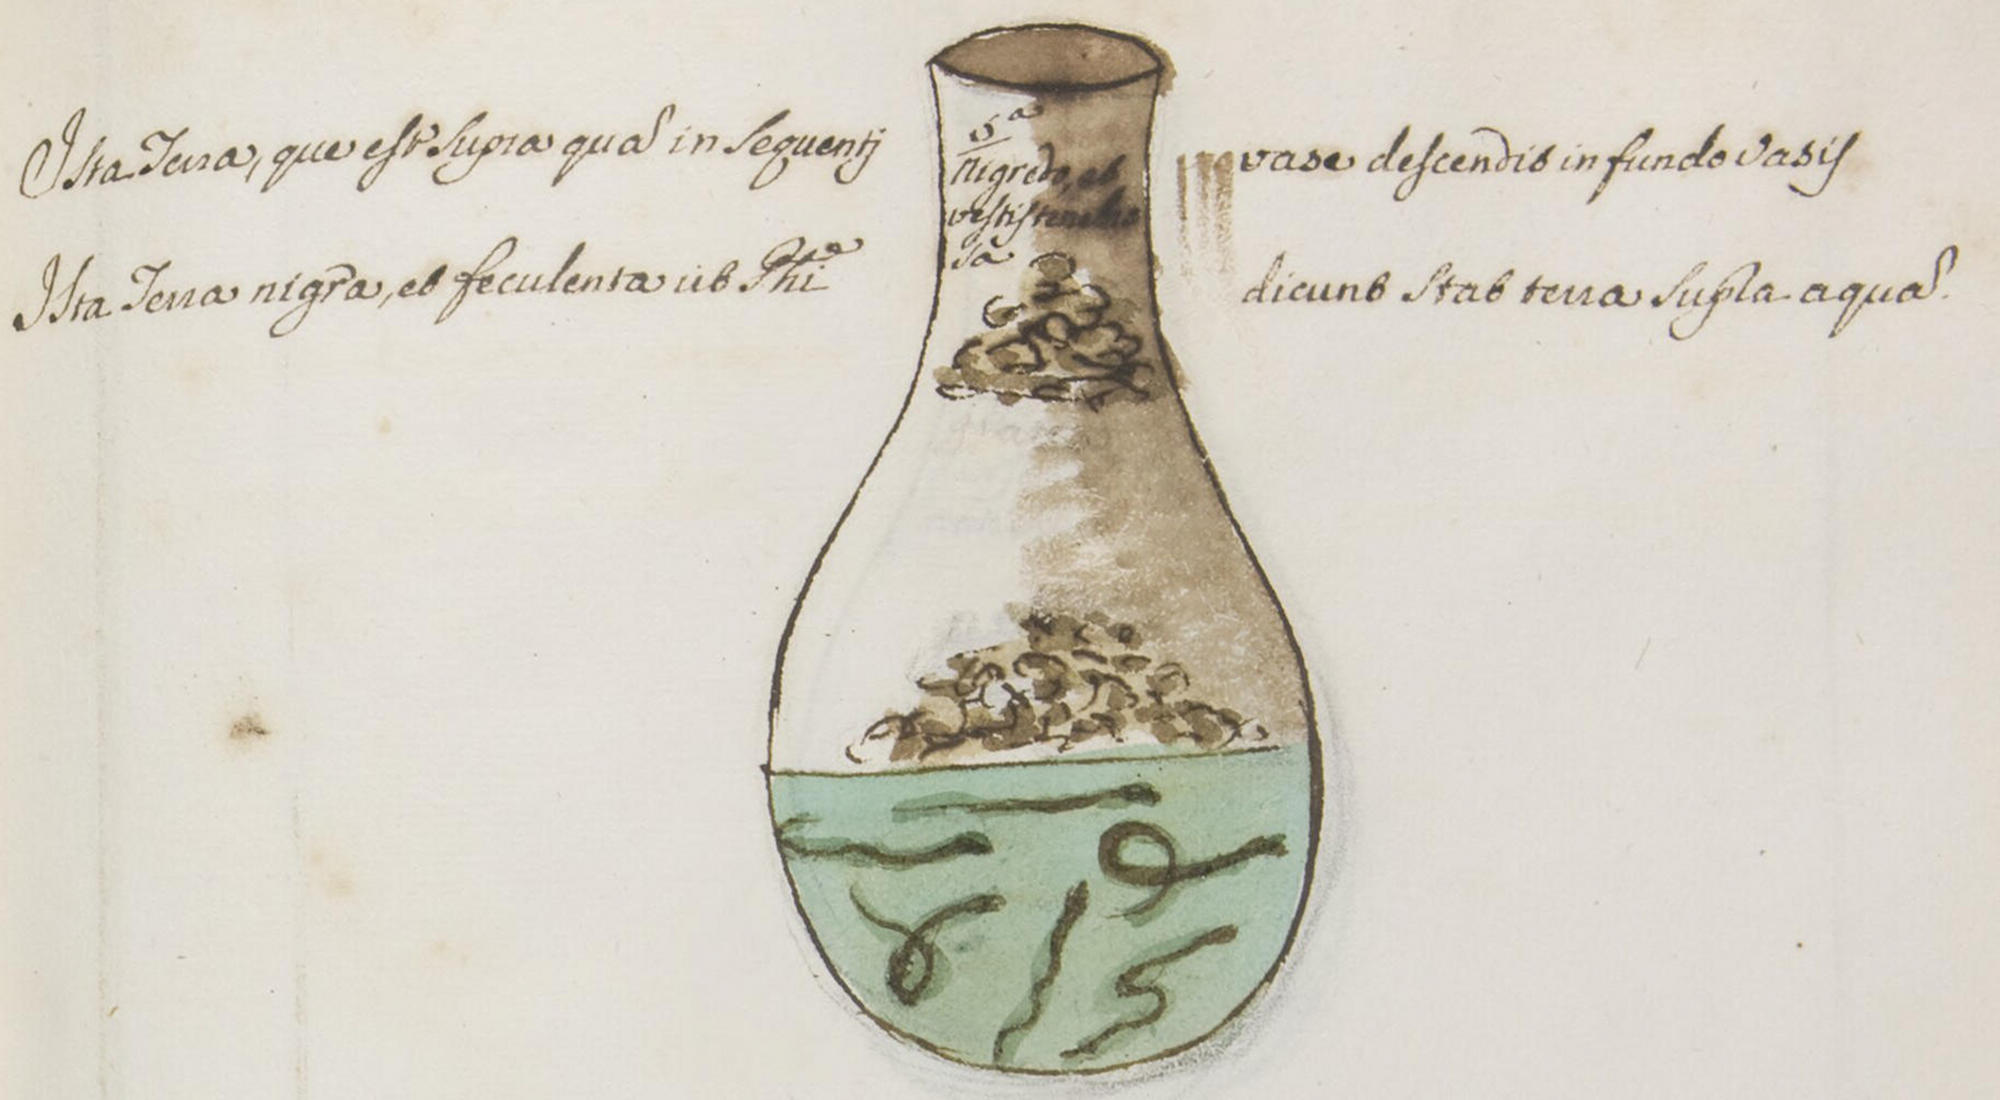 Ista Terra, que est supra quã in sequentj vase descendit in fundo vasis
Ista Terra nigra, et feculenta ut Phi^e dicunt stat terra supra aquã.
5^a
nigredo, et
vestis tenebro
sa